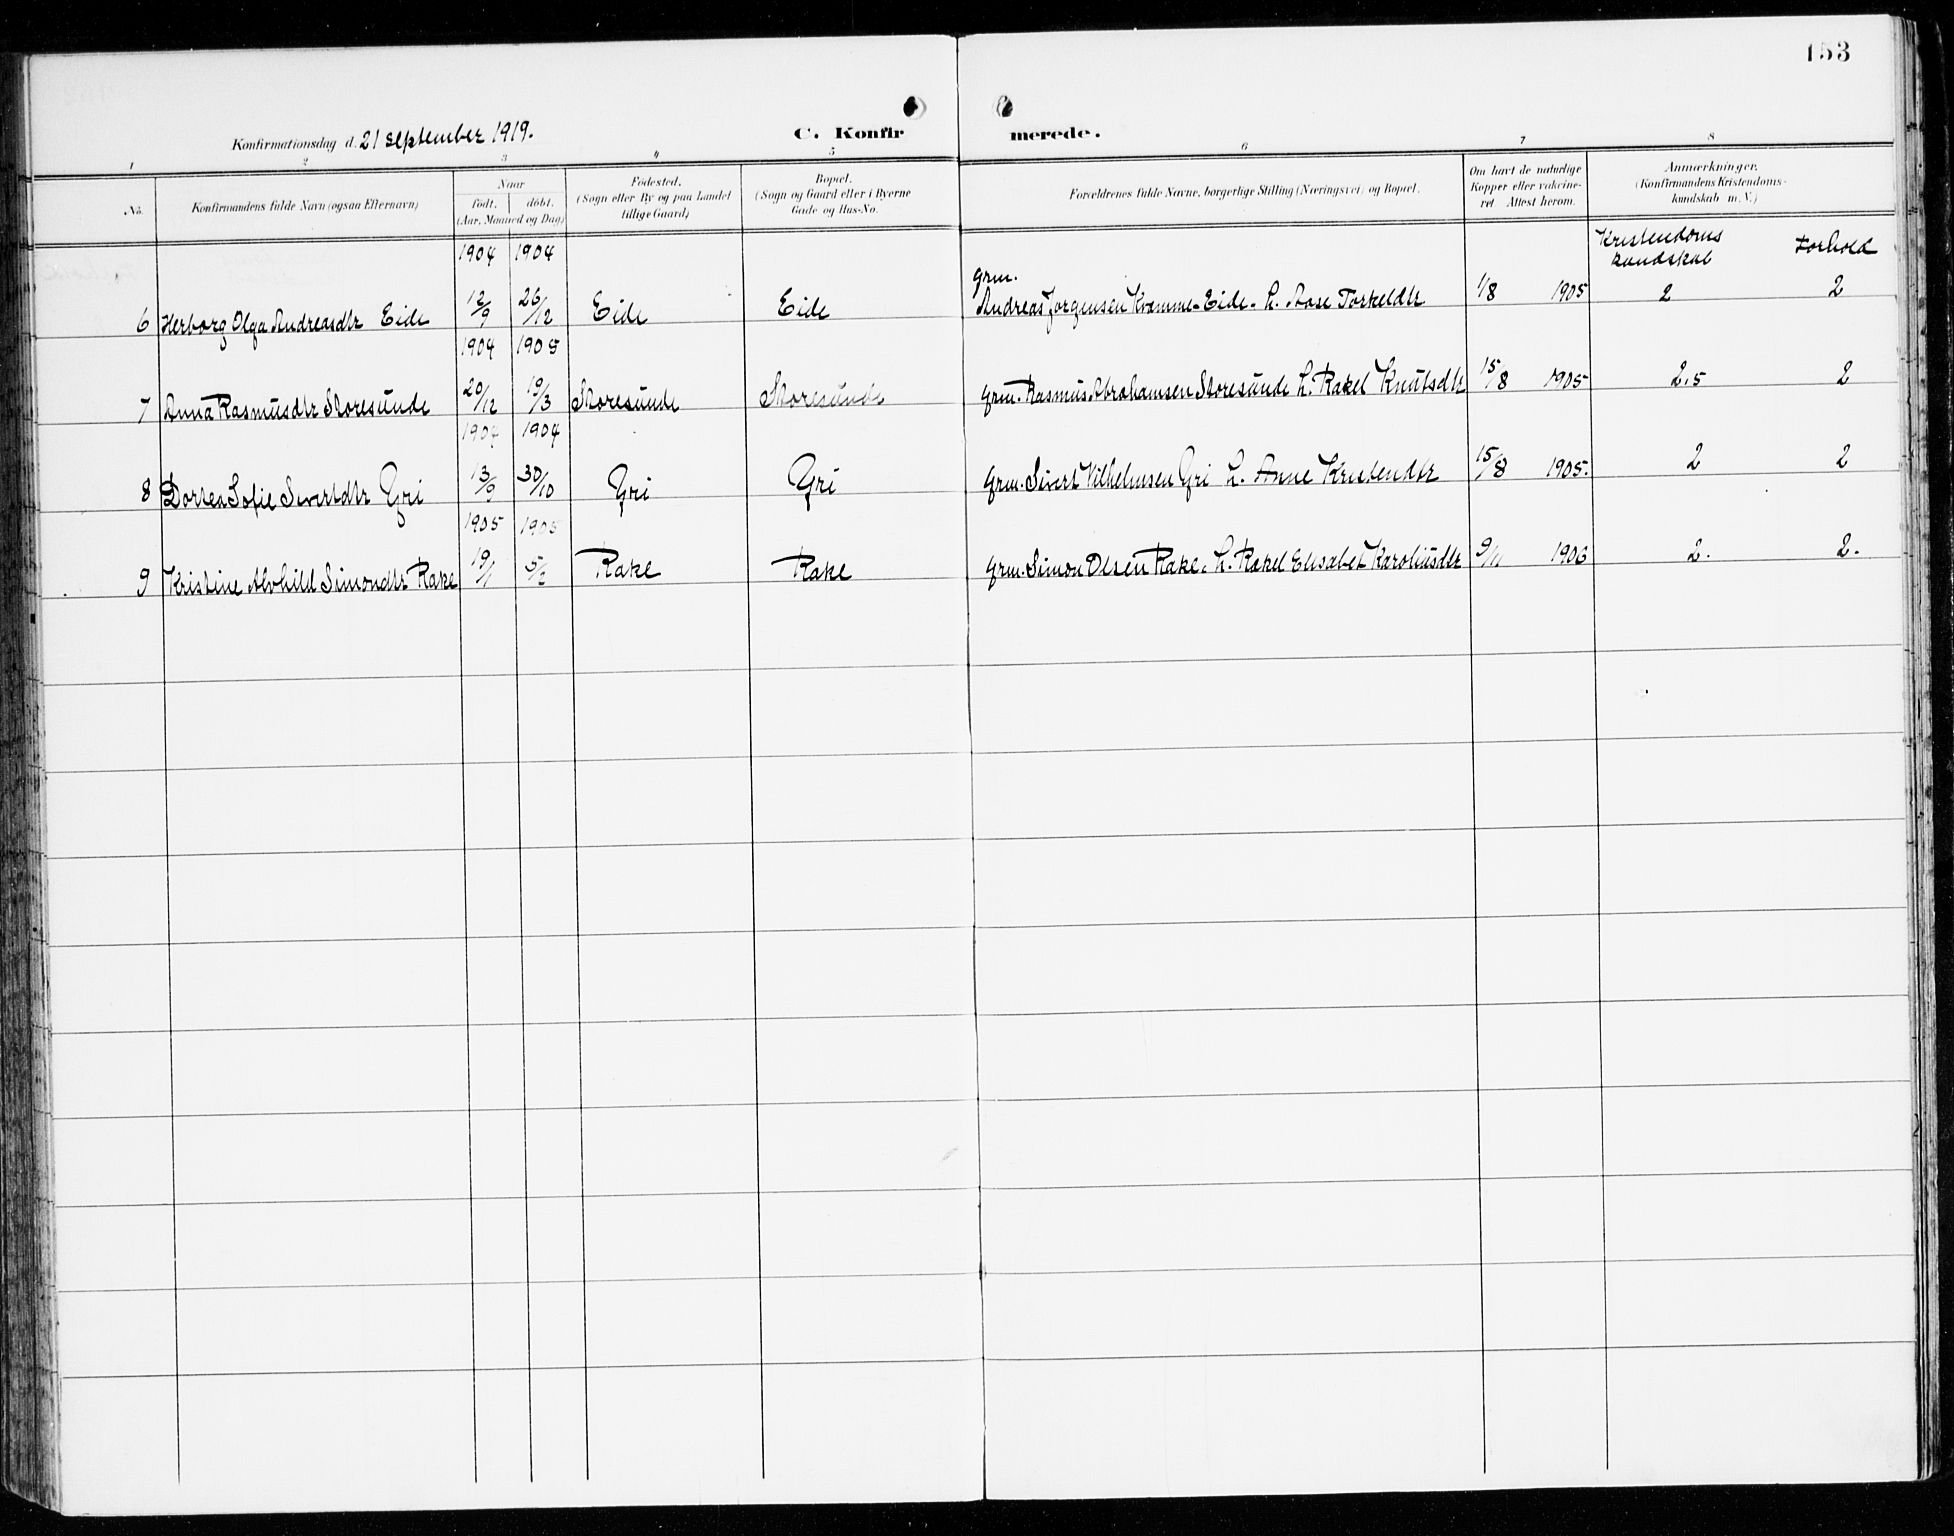 153
Konfirmationsdag d. 21 september 1919.
C. Konfirmerede.
1 2 3 4 5 6 7 8
No.
Konfirmandens fulde Navn (ogsaa Efternavn)
Naar
født. døbt.
(Aar, Maaned og Dag)
Fødested.
(Sogn eller By og paa Landet
tillige Gaard)
Bopæl.
(Sogn og Gaard eller i Byerne
Gade og Hus-No.
Forældrenes fulde Navne, borgerlige Stilling (Næringsvei) og Bopæl.
Om havt de naturlige
Kopper eller vakcine-
ret Attest herom.
Anmærkninger.
(Konfirmandens Kristendoms-
kundskab m. V.)
Kristendoms kundskab Forhold
1904 1904
6 Herborg Olga Andreasdtr Eide 12/9 26/12 Eide Eide Grm. Andreas Jørgensen Kvamme-Eide. h. Aase Torkeldtr 1/8 1905 2 2
1904 1905
7 Anna Rasmusdtr Storesunde 20/12 19/3 Storesunde Storesunde Grm. Rasmus Abrahamsen Storesunde h. Rakel Knutsdtr 15/8 1905 2.5 2
1904 1904
8 Dortea Sofie Sivertdtr Gri 13/9 30/10 Gri Gri Grm. Sivert Vilhelmsen Gri h. Anne Kristendtr 15/8 1905. 2 2
1905 1905
9 Kristine Alvhild Simondtr Rake 19/1 5/2 Rake Rake Grm. Simon Olsen Rake. h. Rakel Elisabet Karoliusdtr 9/11 1906 2. 2.